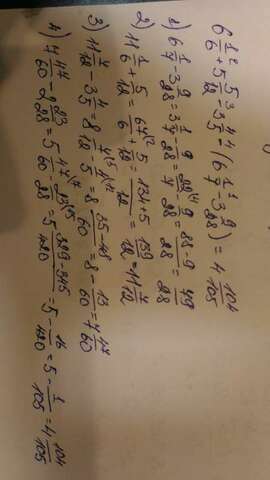 6 1/6 + 5 5/12 - 3 4/5 - (6 1/7 - 3 9/28) = 4 104/105
1) 6 1/7 - 3 9/28 = 3 1/7 - 9/28 = 22/7 - 9/28 = 88-9/28 = 79/28
2) 11 1/6 + 5/12 = 67/6 + 5/12 = 134+5/12 = 139/12 = 11 7/12
3) 11 7/12 - 3 4/5 = 8 7/12 - 4/5 = 8 35-48/60 = 8 - 13/60 = 7 47/60
4) 7 47/60 - 2 23/28 = 5 47/60 - 23/28 = 5 329-345/420 = 5 - 16/420 = 5 - 1/105 = 4 104/105